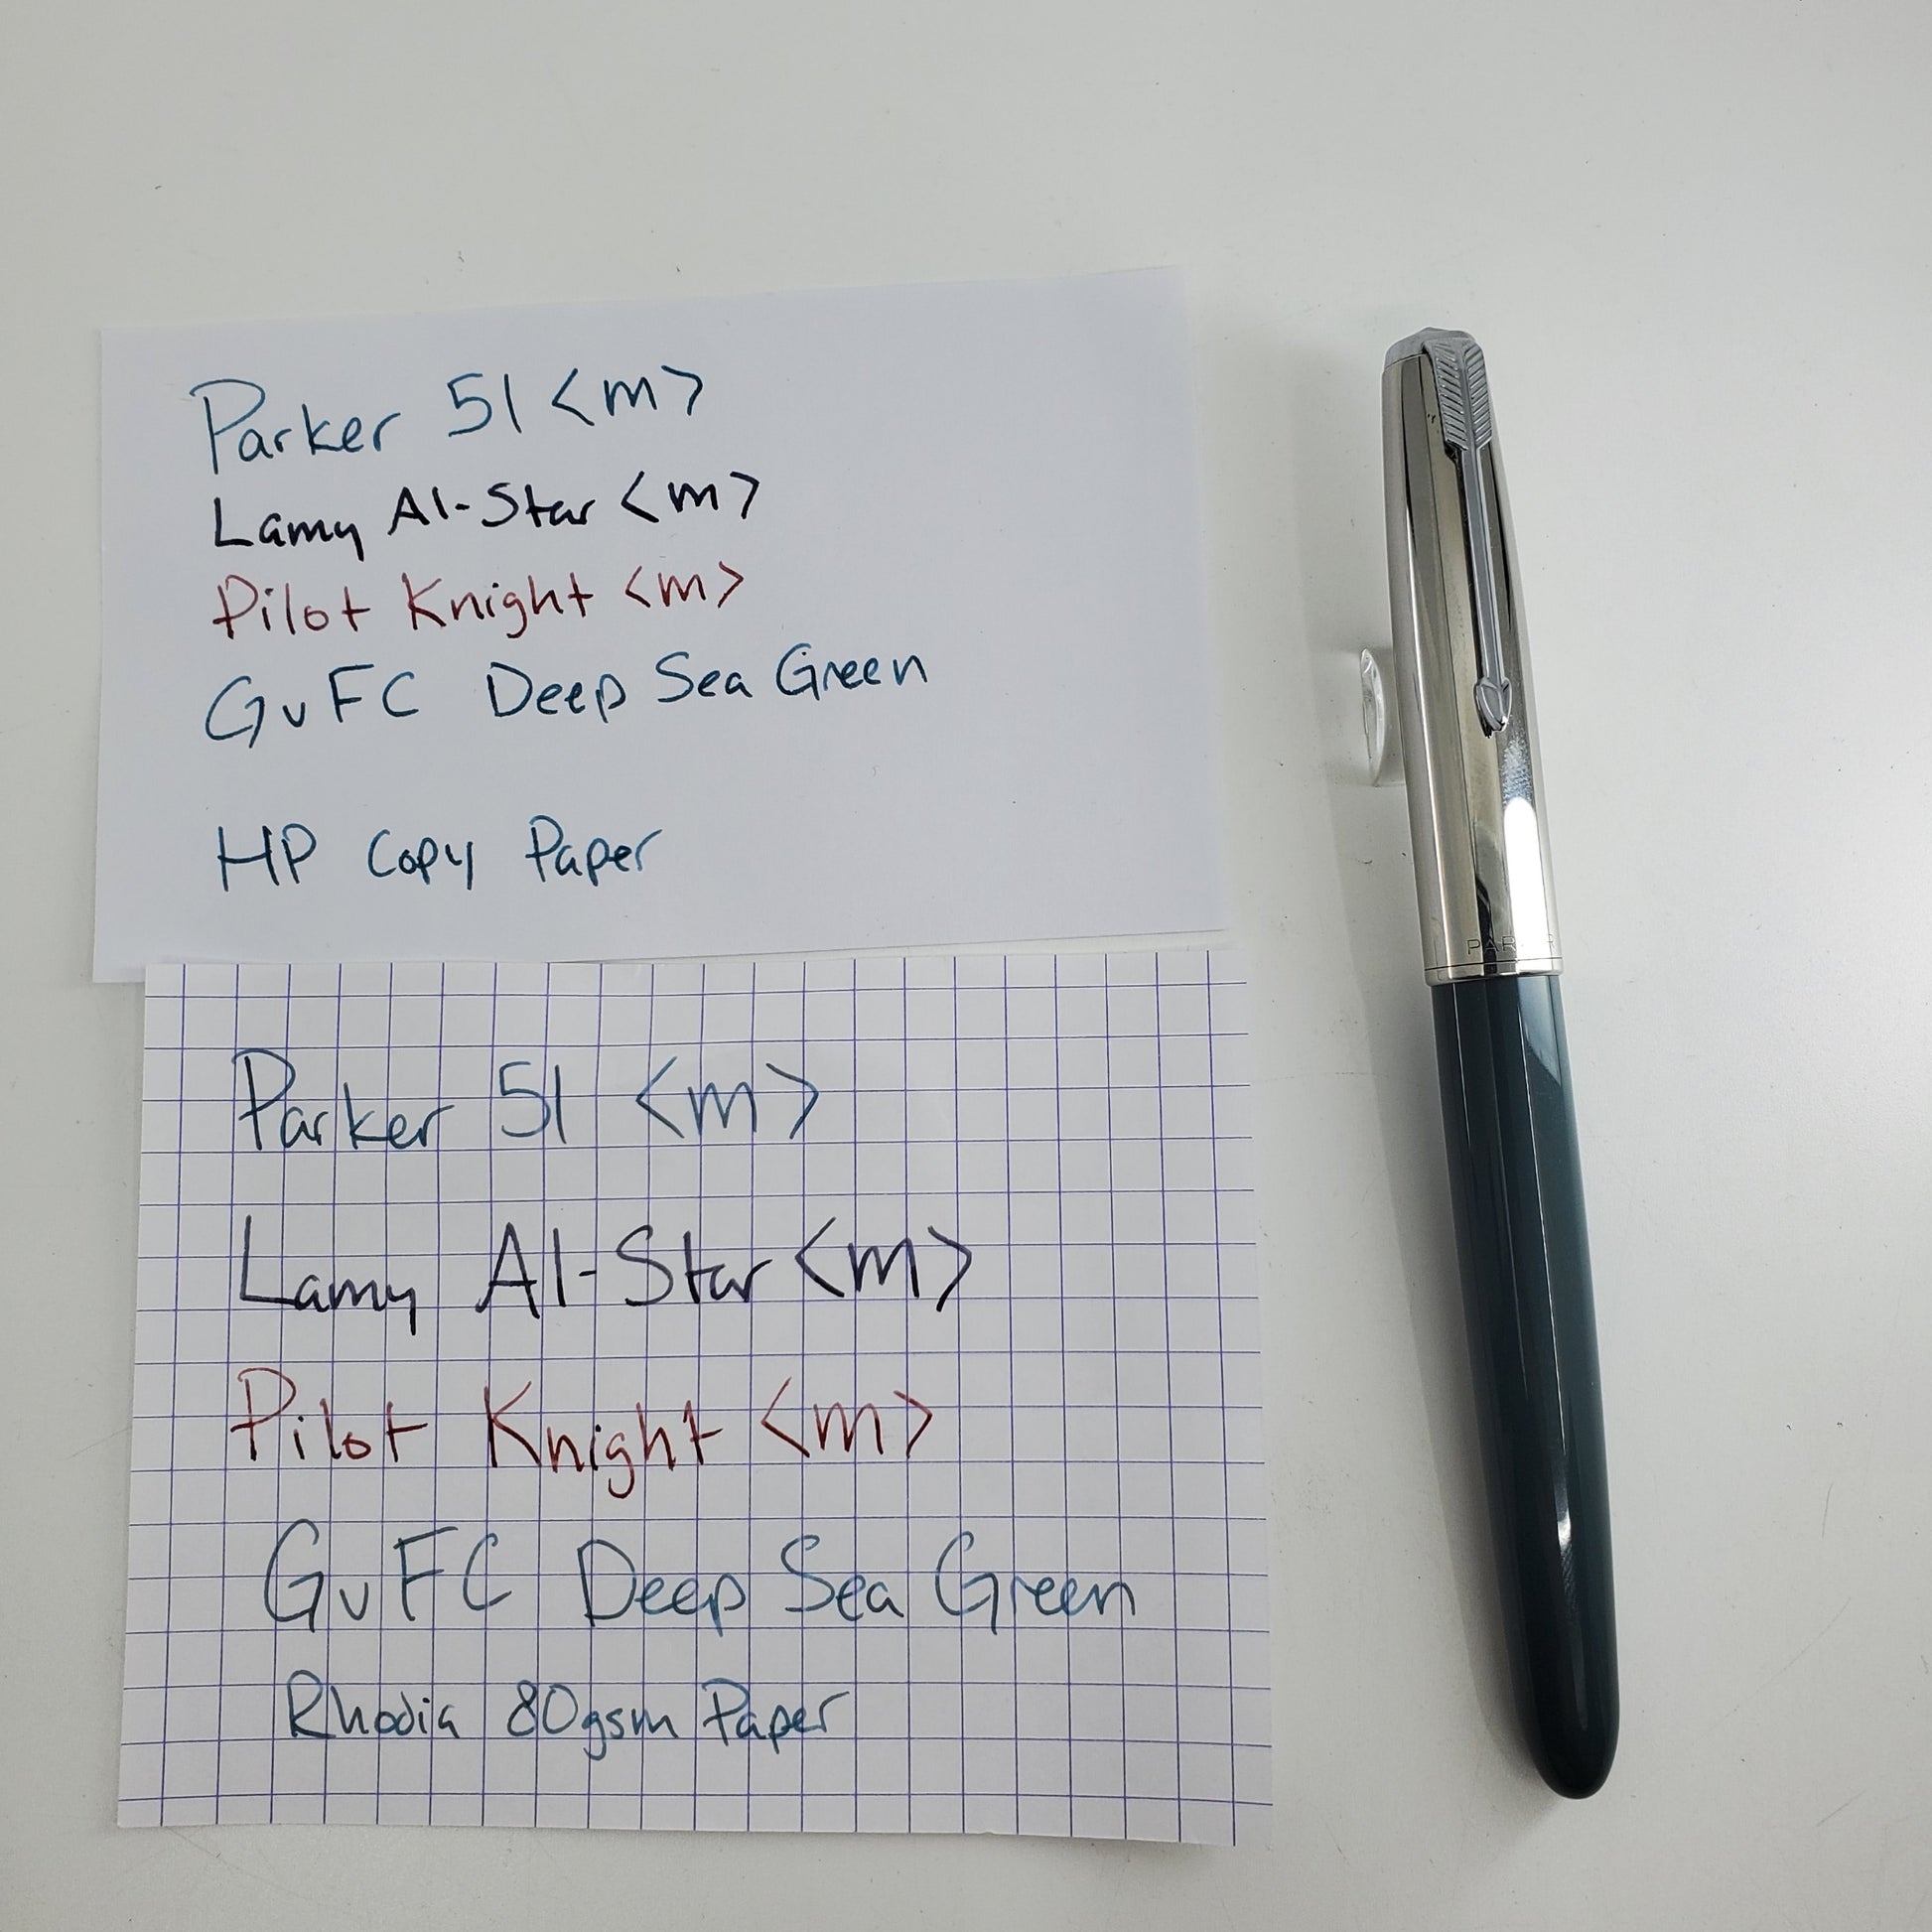 Parker 51 <m>
Lamy Al-Star <m>
Pilot Knight <m>
GvFC Deep Sea Green
HP Copy Paper
Parker 51 <m>
Lamy Al-Star <m>
Pilot Knight <m>
GvFC Deep Sea Green
Rhodia 80gsm Paper
PARKER